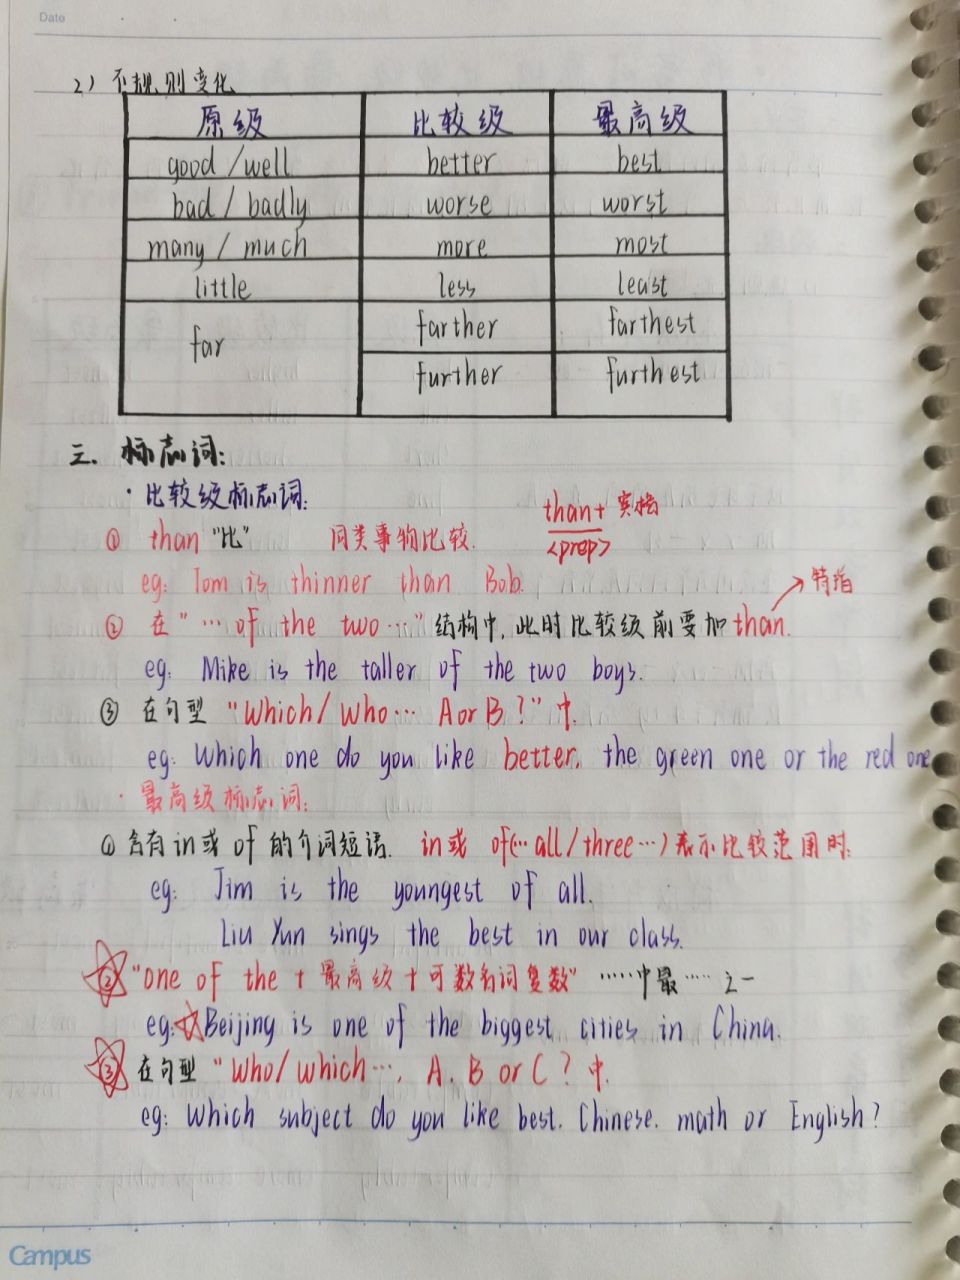 Date
2) 不规则变化
原级 比较级 最高级
good / well better best
bad / badly worse worst
many / much more most
little less least
far farther farthest
further furthest
三. 标志词:
· 比较级标志词:
① than "比" 同类事物比较. than+宾格
<prep>
eg: Tom is thinner than Bob.
特指
② 在 "… of the two …" 结构中, 此时比较级前要加 than.
eg: Mike is the taller of the two boys.
③ 在句型 "Which/ who … A or B ?" 中.
eg: Which one do you like better, the green one or the red one
· 最高级标志词:
① 含有 in 或 of 的介词短语. in 或 of(… all / three …) 表示比较范围时:
eg: Jim is the youngest of all.
Liu Yun sings the best in our class.
② "one of the + 最高级 + 可数名词复数" ……中最…… 之一
eg: Beijing is one of the biggest cities in China.
③ 在句型 "Who/ which …, A, B or C ? 中.
eg: Which subject do you like best, Chinese, math or English ?
Campus